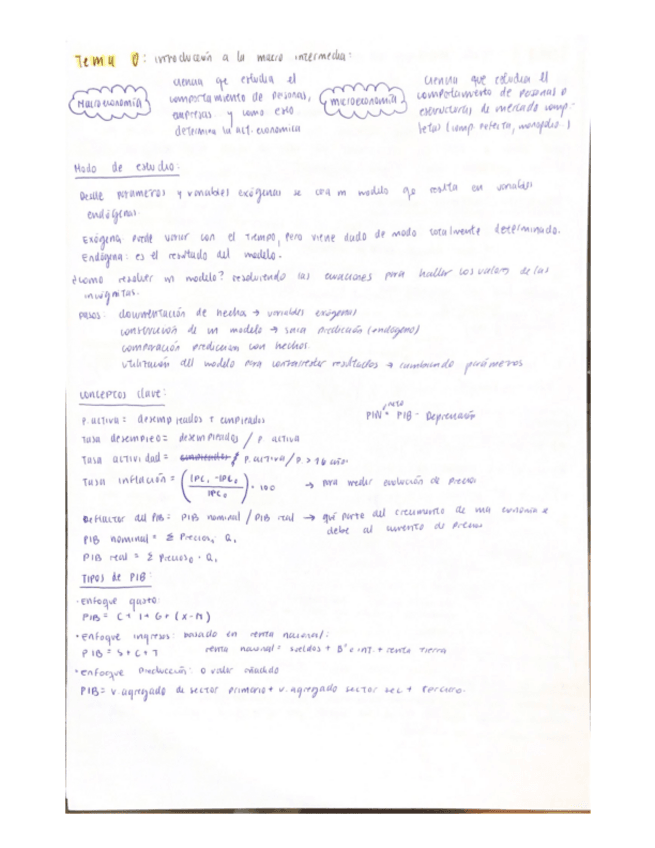 Tema 0: introducción a la macro intermedia:
Macroeconomía
ciencia qe estudia el
comportamiento de personas,
empresas y como esto
determina la act. economica
microeconomía
ciencia que estudia el
comportamiento de personas o
estructuras de mercado comp-
letas (comp. perfecta, monopolio.)
Modo de estudio:
Desde parámetros y variables exógenas se crea un modelo qe resulta en variables
endógenas.
Exógena: puede variar con el tiempo, pero viene dado de modo totalmente determinado.
Endógena: es el resultado del modelo.
¿como resolver un modelo? resolviendo las ecuaciones para hallar los valores de las
incógnitas.
pasos: documentación de hechos → variables exógenas
construcción de un modelo → saca predicción (endógeno)
comparación prediccion con hechos.
utilización del modelo para contrarrestar resultados → cambiando parámetros
conceptos clave:
P. activa = desempleados + empleados
PIN neto = PIB - Depreciación
tasa desempleo = desempleados / P. activa
tasa actividad = P. activa / P. > 16 años
Tasa inflación = (IPC₁ - IPC₀ / IPC₀) · 100 → para medir evolución de precios
Deflactor del PIB = PIB nominal / PIB real → qué parte del crecimiento de una economía se
debe al aumento de precios
PIB nominal = Σ Precios₁ · Q₁
PIB real = Σ Precios₀ · Q₁
TIPOS de PIB:
· enfoque gasto:
PIB = C + I + G + (X - M)
· enfoque ingresos: basado en renta nacional:
PIB = S + C + T renta nacional = sueldos + Bº e int. + renta tierra
· enfoque producción: o valor añadido
PIB = v. agregado de sector primario + v. agregado sector sec + terciario.